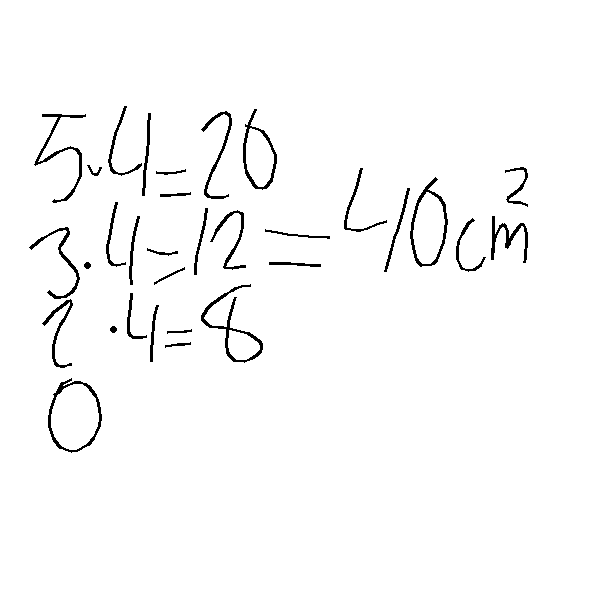 5·4=20
3·4=12 = 40cm²
2 ·4=8
0